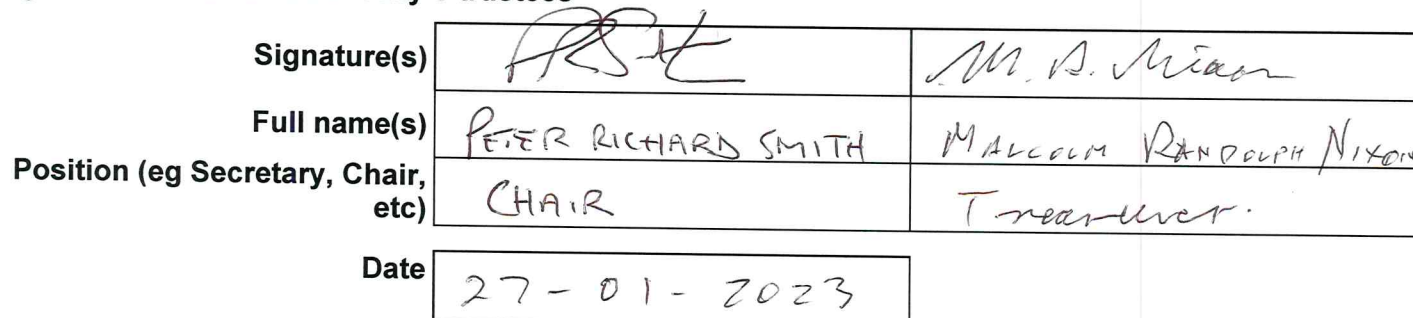 Signature(s)
Full name(s) PETER RICHARD SMITH MALCOLM RANDOLPH NIXON
Position (eg Secretary, Chair,
etc) CHAIR Treasurer.
Date 27-01-2023